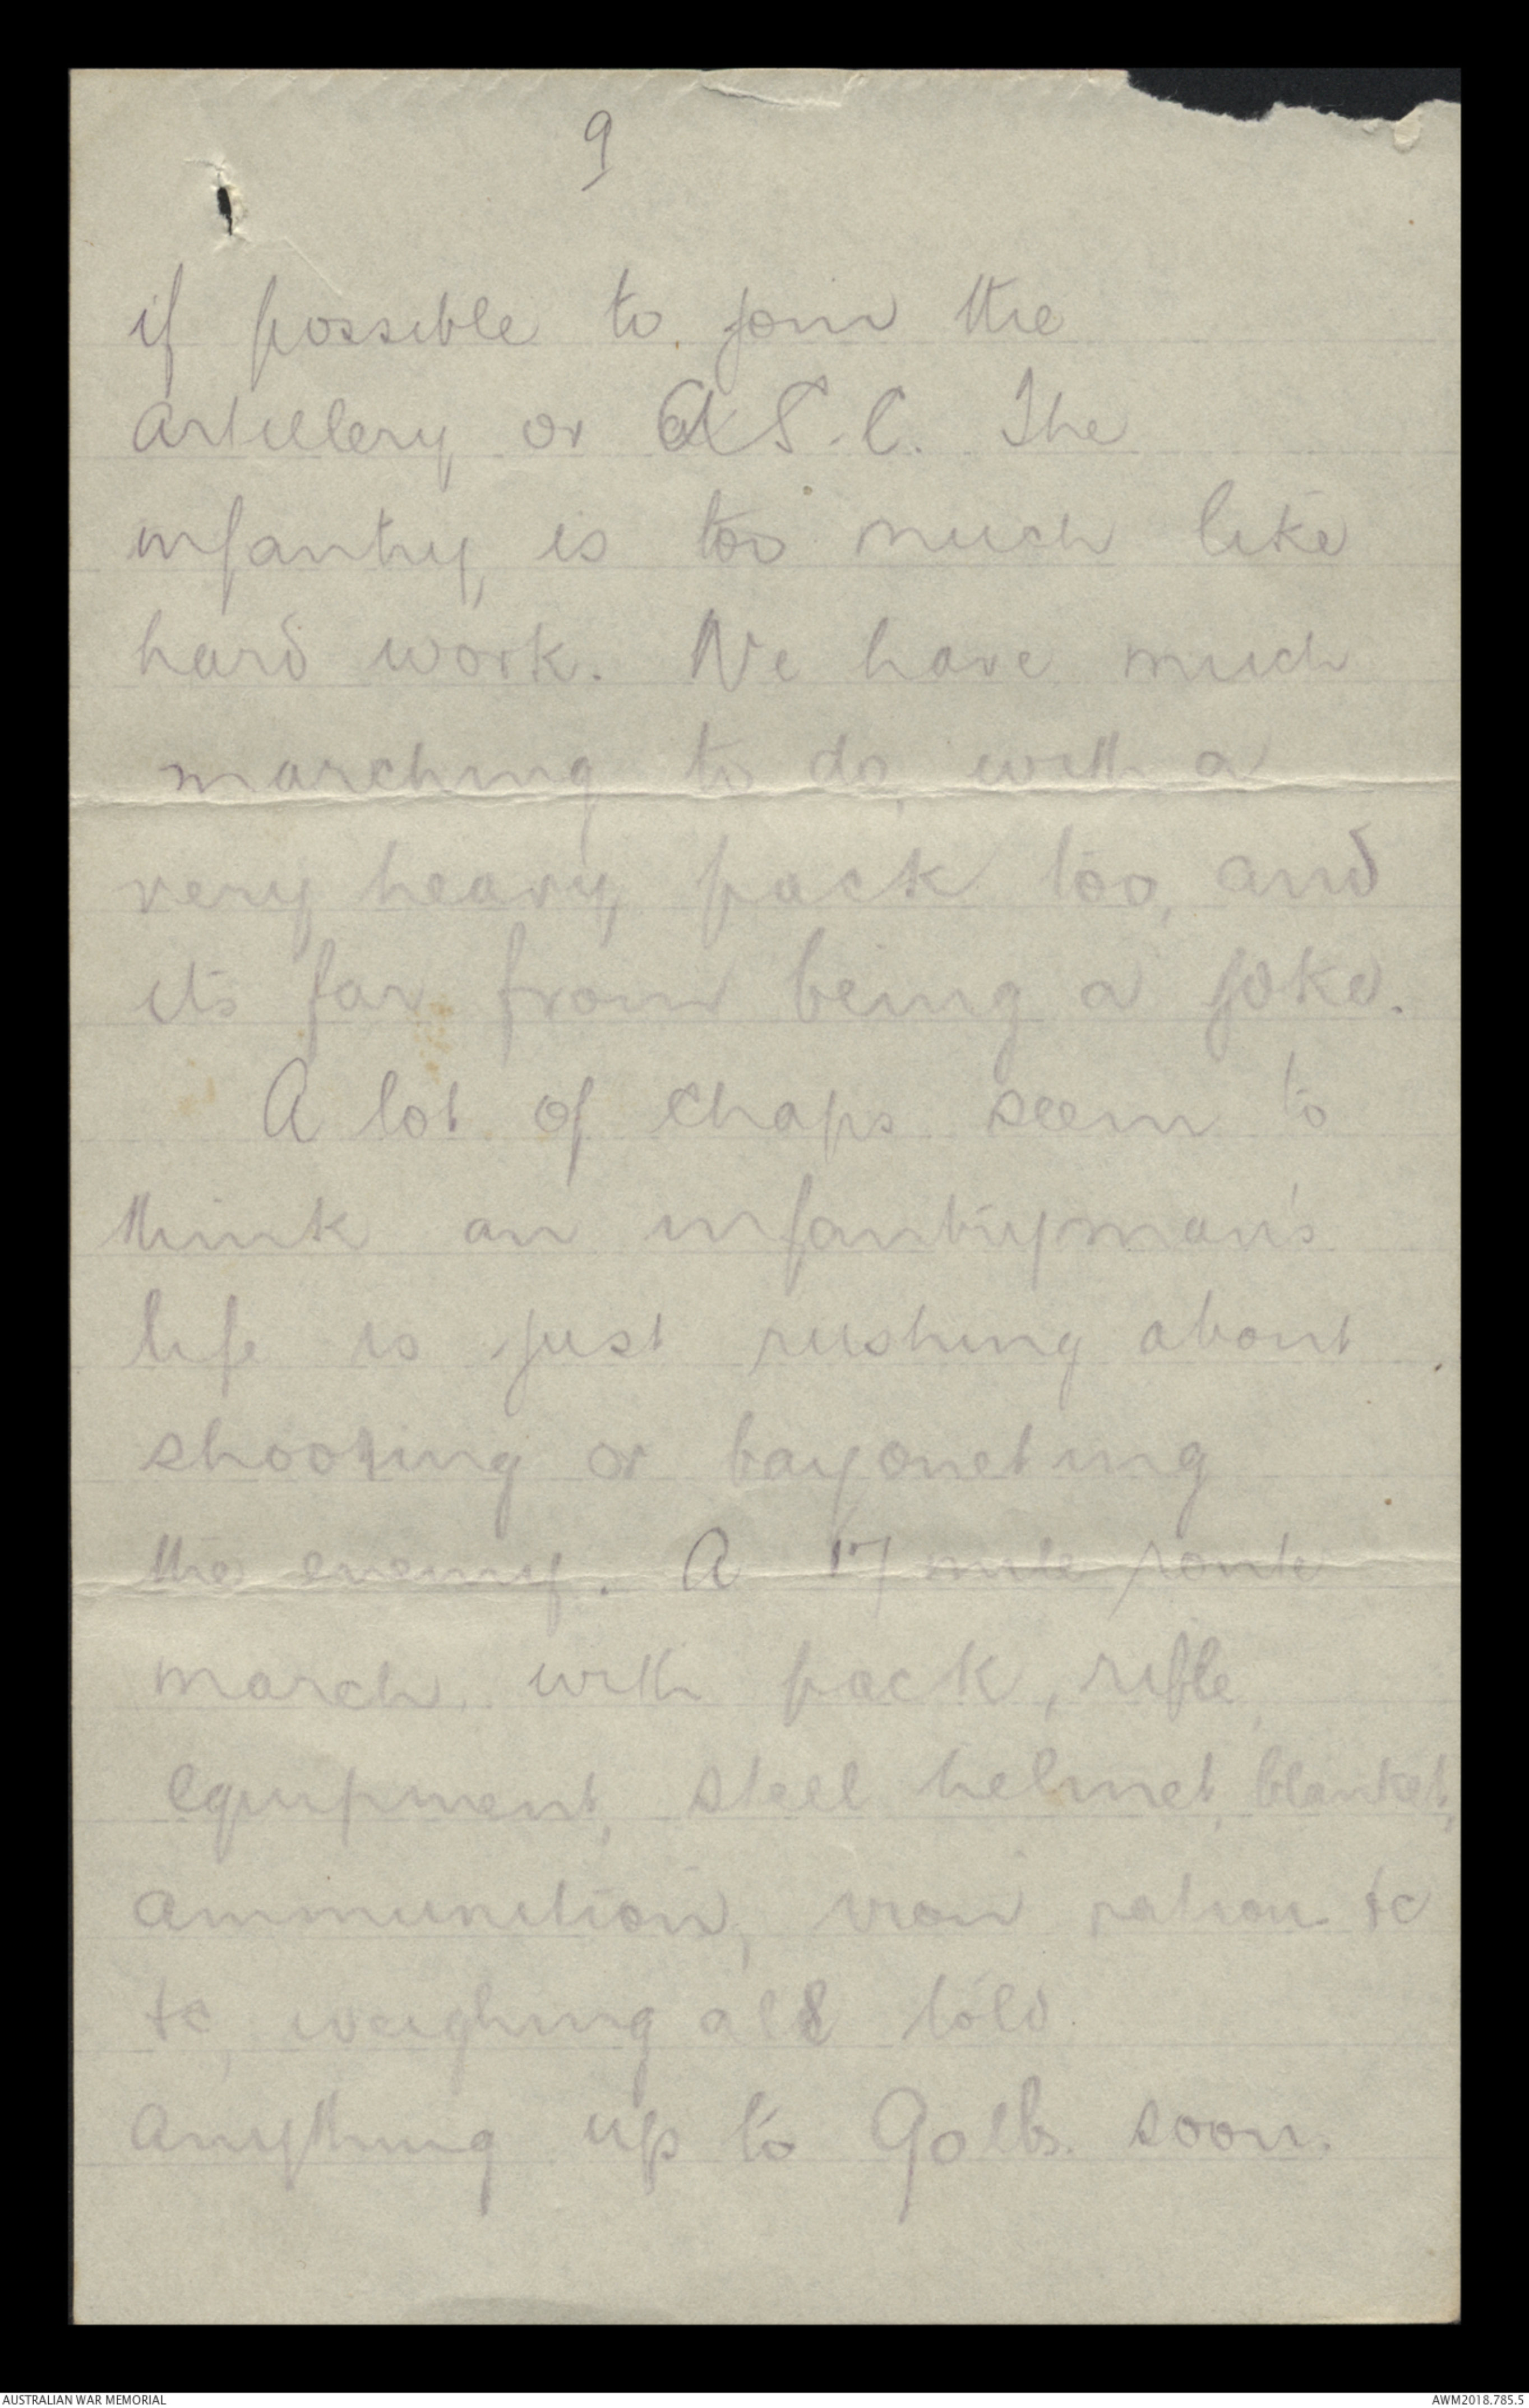 9
if possible to join the
artillery or A.S.C. The
infantry is too much like
hard work. We have much
marching to do with a
very heavy pack too, and
its far from being a joke.
A lot of chaps seem to
think an infantryman's
life is just rushing about
shooting or bayoneting
the enemy. A 17 mile route
march with pack, rifle,
equipment, steel helmet, blanket,
ammunition, iron ration &c
&c, weighing all told
anything up to 90lbs. soon.
AUSTRALIAN WAR MEMORIAL
AWM2018.785.5